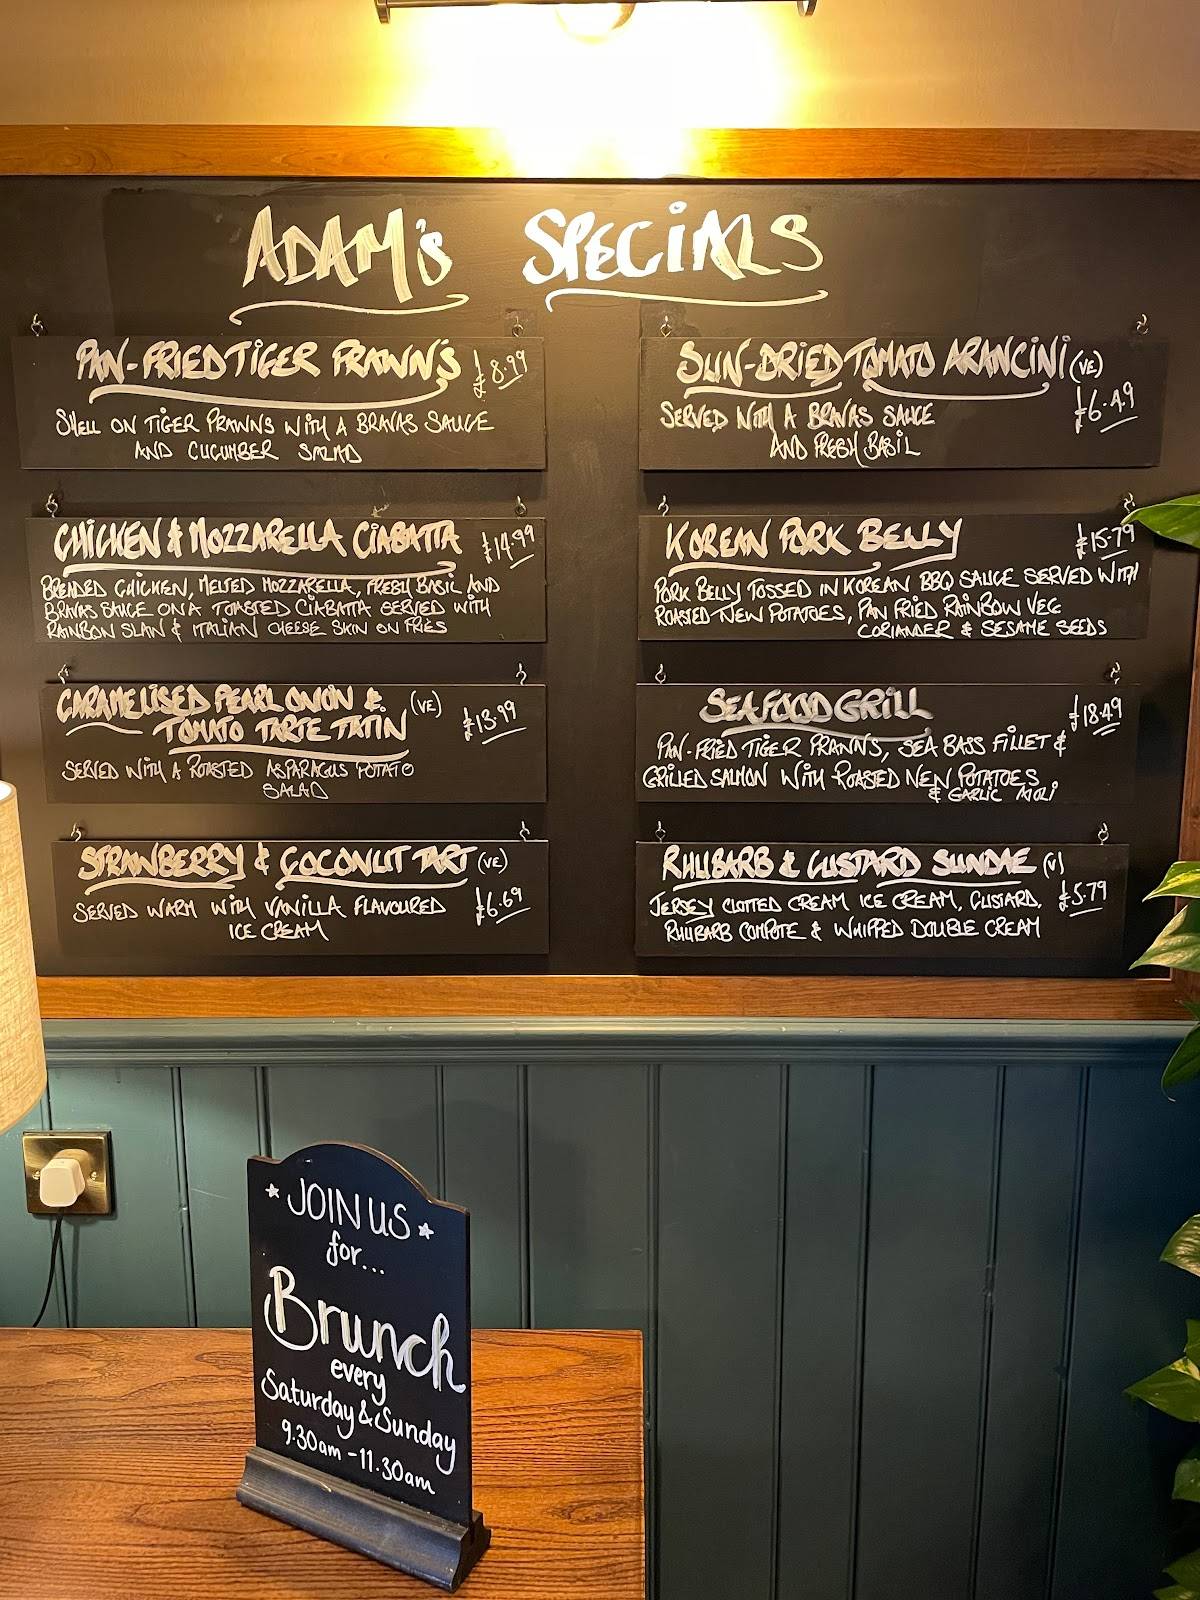 ADAM's SPECIALS
PAN-FRIED TIGER PRAWN'S £8.99
SHELL ON TIGER PRAWNS WITH A BRAVAS SAUCE
AND CUCUMBER SALAD
CHICKEN & MOZZARELLA CIABATTA £14.99
BREADED CHICKEN, MELTED MOZZARELLA, FRESH BASIL AND
BRAVAS SAUCE ON A TOASTED CIABATTA SERVED WITH
RAINBOW SLAW & ITALIAN CHEESE SKIN ON FRIES
CARAMELISED PEARL ONION & (VE)
TOMATO TARTE TATIN £13.99
SERVED WITH A ROASTED ASPARAGUS POTATO
SALAD
STRAWBERRY & COCONUT TART (VE)
£6.69
SERVED WARM WITH VANILLA FLAVOURED
ICE CREAM
SUN-DRIED TOMATO ARANCINI (VE)
£6.49
SERVED WITH A BRAVAS SAUCE
AND FRESH BASIL
KOREAN PORK BELLY £15.79
PORK BELLY TOSSED IN KOREAN BBQ SAUCE SERVED WITH
ROASTED NEW POTATOES, PAN FRIED RAINBOW VEG
CORIANDER & SESAME SEEDS
SEAFOOD GRILL £18.49
PAN-FRIED TIGER PRAWNS, SEA BASS FILLET &
GRILLED SALMON WITH ROASTED NEW POTATOES
& GARLIC AIOLI
RHUBARB & CUSTARD SUNDAE (V)
£5.79
JERSEY CLOTTED CREAM ICE CREAM, CUSTARD,
RHUBARB COMPOTE & WHIPPED DOUBLE CREAM
JOIN US
for...
Brunch
every
Saturday & Sunday
9.30am - 11.30am